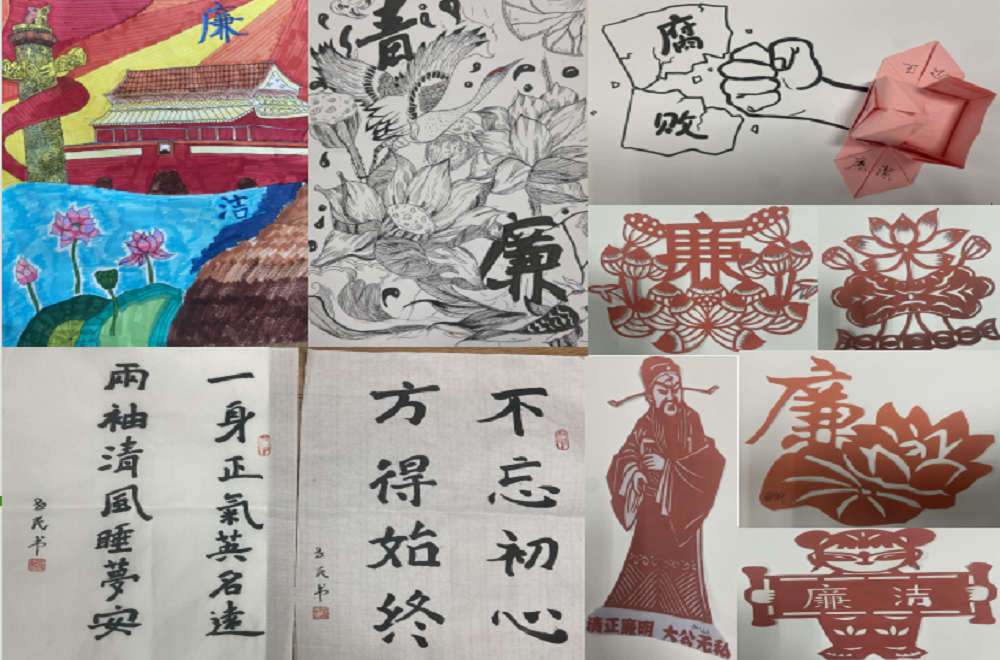 廉
洁
清
廉
腐
败
公正
廉洁
廉
一身正氣英名遠
兩袖清風睡夢安
昌民书
不忘初心
方得始终
昌民书
清正廉明 大公无私
廉
廉 洁